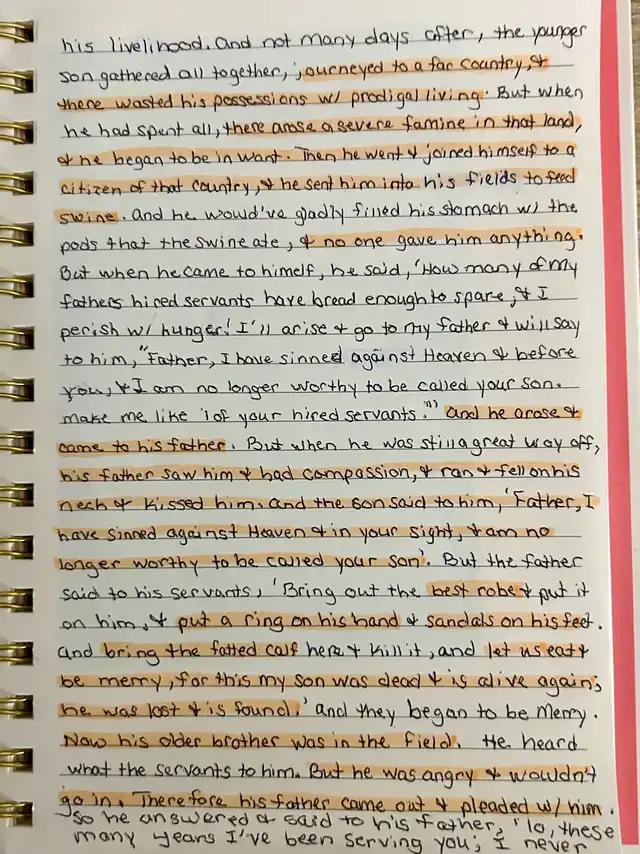 his livelihood. And not many days after, the younger
son gathered all together, journeyed to a far country, &
there wasted his possessions w/ prodigal living. But when
he had spent all, there arose a severe famine in that land,
& he began to be in want. Then he went & joined himself to a
citizen of that country, & he sent him into his fields to feed
swine. And he would've gladly filled his stomach w/ the
pods that the swine ate, & no one gave him anything.
But when he came to himself, he said, 'How many of my
fathers hired servants have bread enough to spare, & I
perish w/ hunger! I'll arise & go to my father & will say
to him, "Father, I have sinned against Heaven & before
you, & I am no longer worthy to be called your son.
make me like 1 of your hired servants."' And he arose &
came to his father. But when he was still a great way off,
his father saw him & had compassion, & ran & fell on his
neck & kissed him. And the son said to him, 'Father, I
have sinned against Heaven & in your sight, & am no
longer worthy to be called your son'. But the father
said to his servants, 'Bring out the best robe & put it
on him, & put a ring on his hand & sandals on his feet.
And bring the fatted calf here & kill it, and let us eat &
be merry, for this my son was dead & is alive again;
he was lost & is found.' and they began to be merry.
Now his older brother was in the field. He heard
what the servants to him. But he was angry & wouldn't
go in. Therefore his father came out & pleaded w/ him.
So he answered & said to his father, 'lo, these
many years I've been serving you; I never